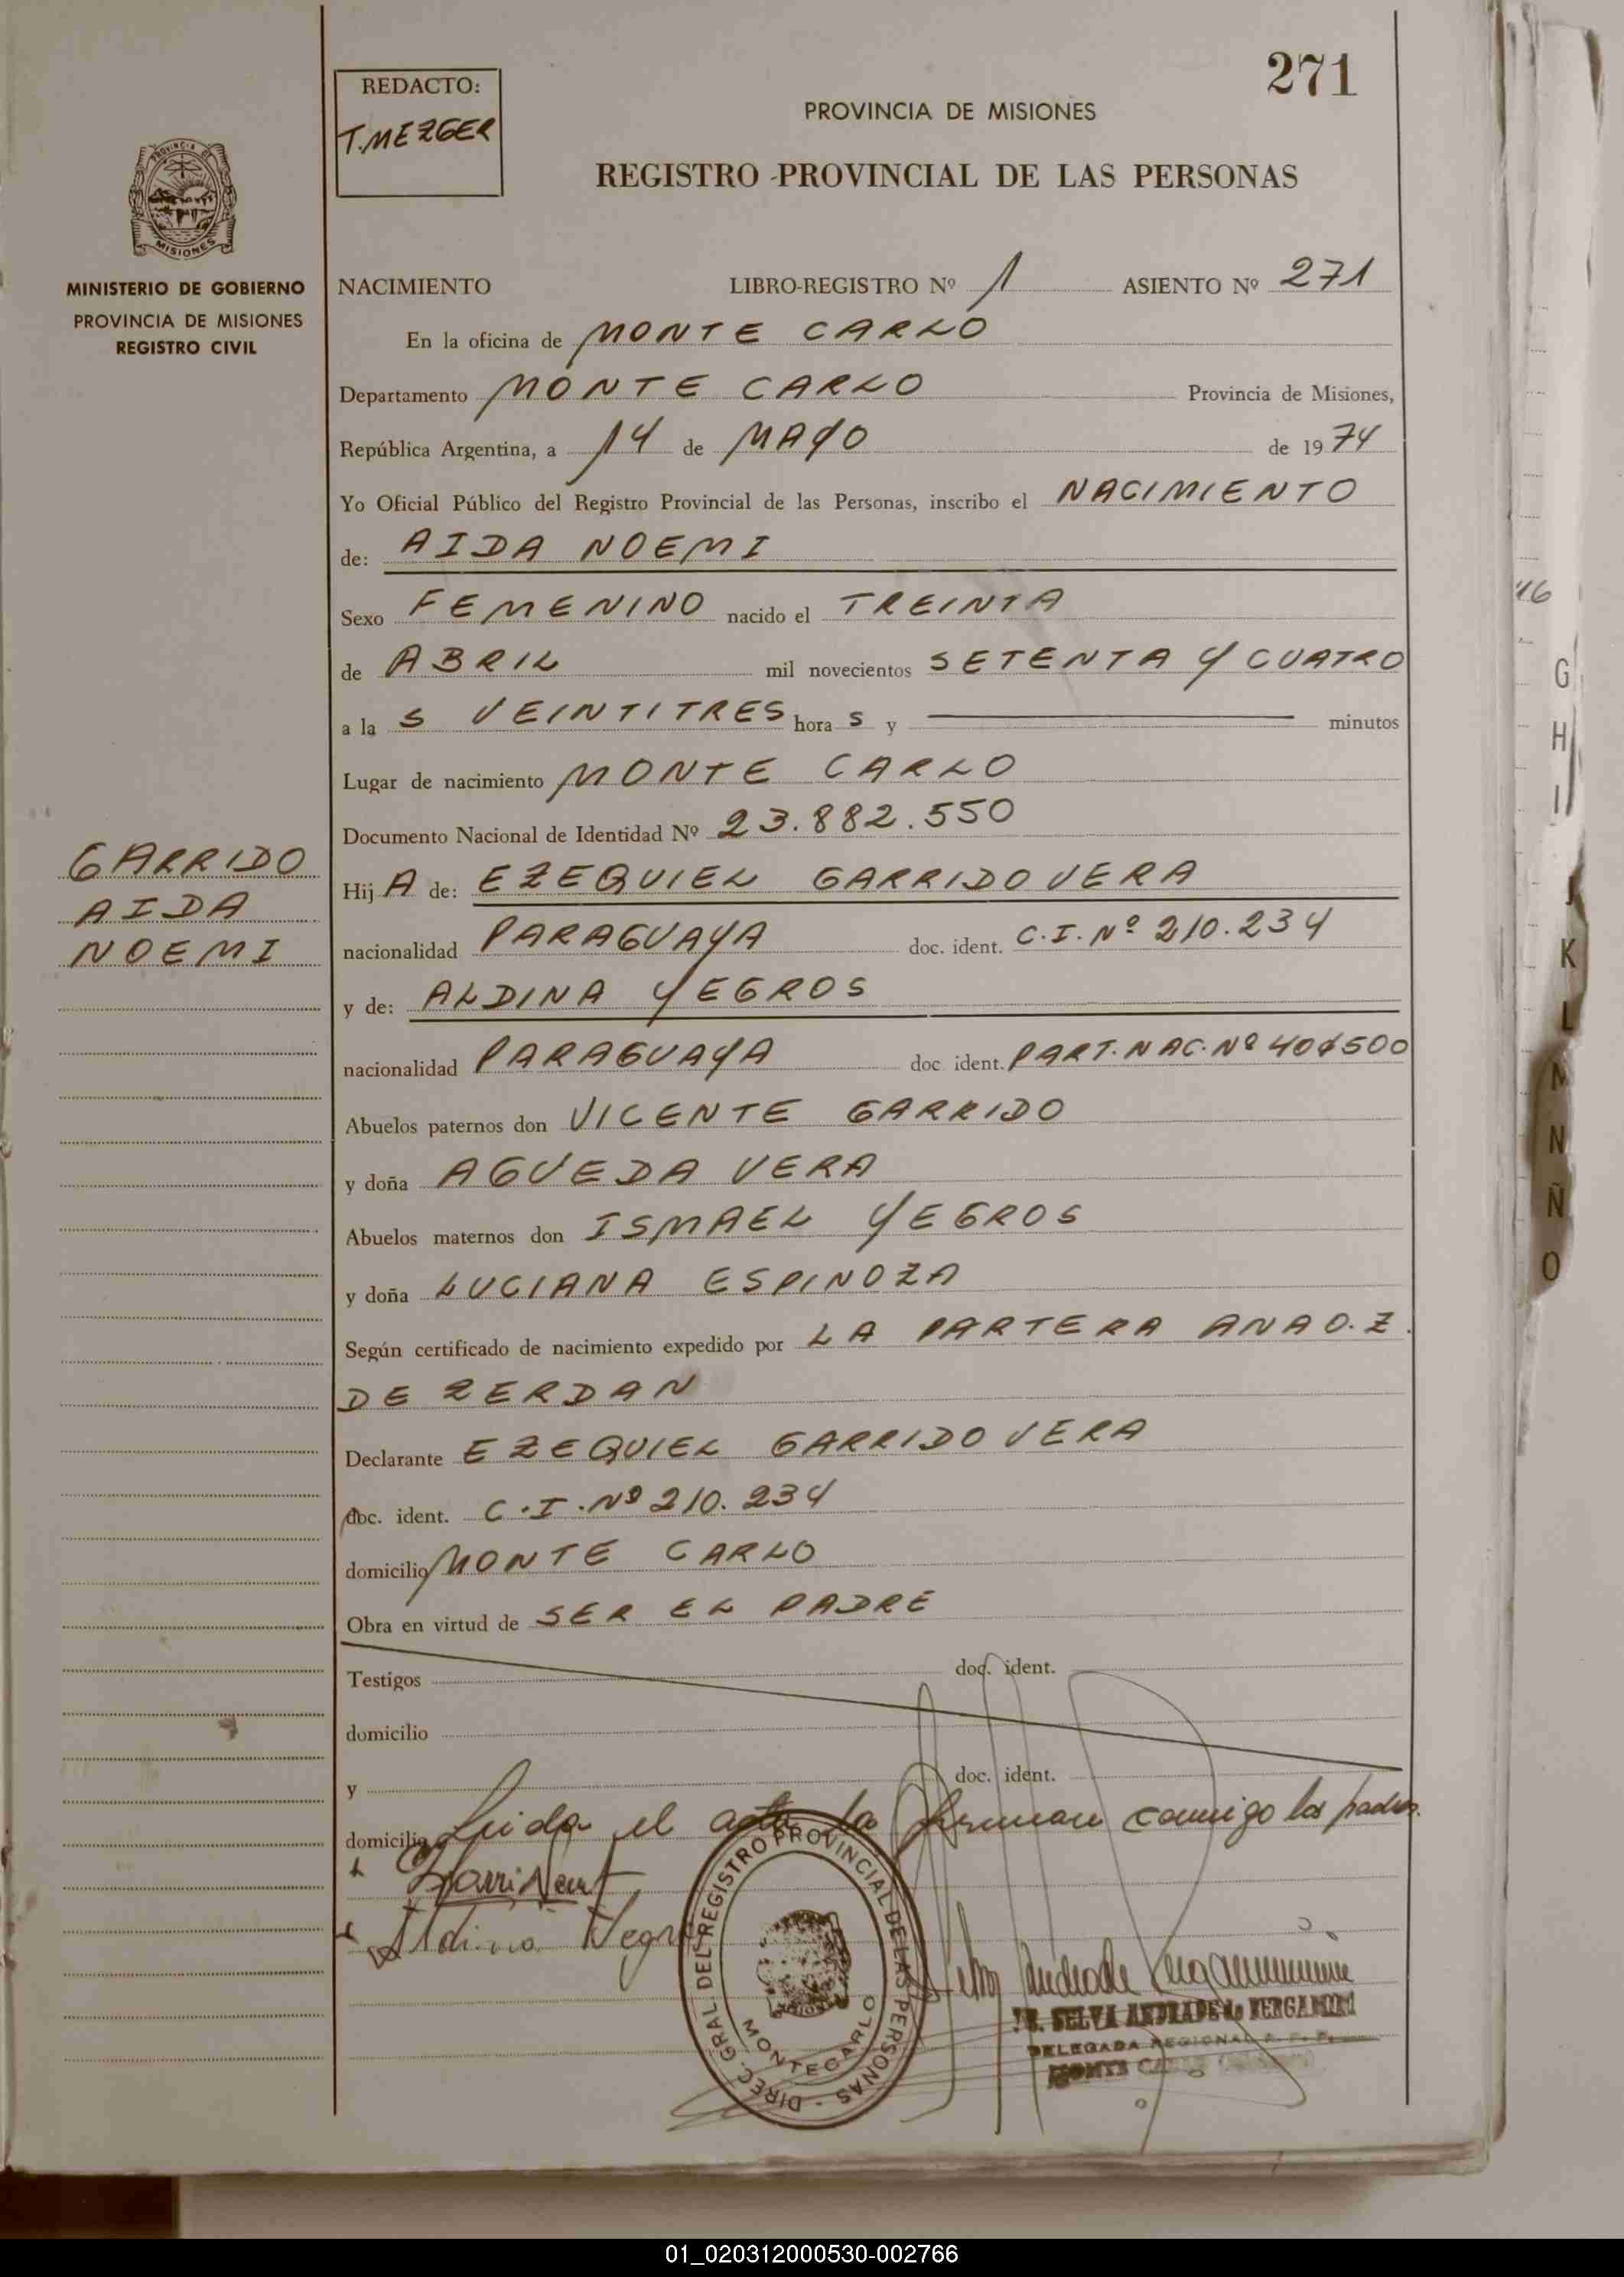 271
REDACTO:
T. MEZGER
PROVINCIA DE MISIONES
REGISTRO PROVINCIAL DE LAS PERSONAS
PROVINCIA DE
MISIONES
MINISTERIO DE GOBIERNO
PROVINCIA DE MISIONES
REGISTRO CIVIL
NACIMIENTO LIBRO-REGISTRO Nº 1 ASIENTO Nº 271
En la oficina de MONTE CARLO
Departamento MONTE CARLO Provincia de Misiones,
República Argentina, a 14 de MAYO de 1974
Yo Oficial Público del Registro Provincial de las Personas, inscribo el NACIMIENTO
de: AIDA NOEMI
Sexo FEMENINO nacido el TREINTA
de ABRIL mil novecientos SETENTA Y CUATRO
a la s VEINTITRES hora s y minutos
Lugar de nacimiento MONTE CARLO
Documento Nacional de Identidad Nº 23.882.550
GARRIDO
AIDA
NOEMI
Hij A de: EZEQUIEL GARRIDO VERA
nacionalidad PARAGUAYA doc. ident. C.I. Nº 210.234
y de: ALDINA YEGROS
nacionalidad PARAGUAYA doc ident. PART. NAC. Nº
Abuelos paternos don VICENTE GARRIDO
y doña AGUEDA VERA
Abuelos maternos don ISMAEL YEGROS
y doña LUCIANA ESPINOZA
Según certificado de nacimiento expedido por LA PARTERA ANA O. Z.
DE ZERDAN
Declarante EZEQUIEL GARRIDO VERA
doc. ident. C.I. Nº 210.234
domicilio MONTE CARLO
Obra en virtud de SER EL PADRE
Testigos doc. ident.
domicilio
y doc. ident.
domicilio Leida el acta la firman conmigo los padres.
Aldina Yegros
DIREC. GRAL. DEL REGISTRO PROVINCIAL DE LAS PERSONAS -
MONTECARLO
SELVA ANDRADE de BERGAMINI
DELEGADA REGIONAL R. P. P.
MONTE
16
G
H
I
J
K
L
M
N
Ñ
O
01_020312000530-002766